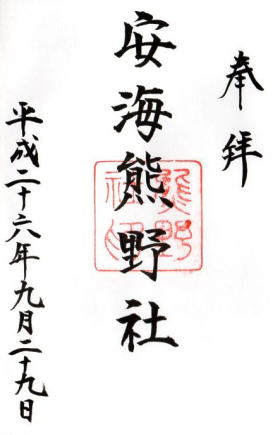 奉拝
安海熊野社
平成二十六年九月二十九日